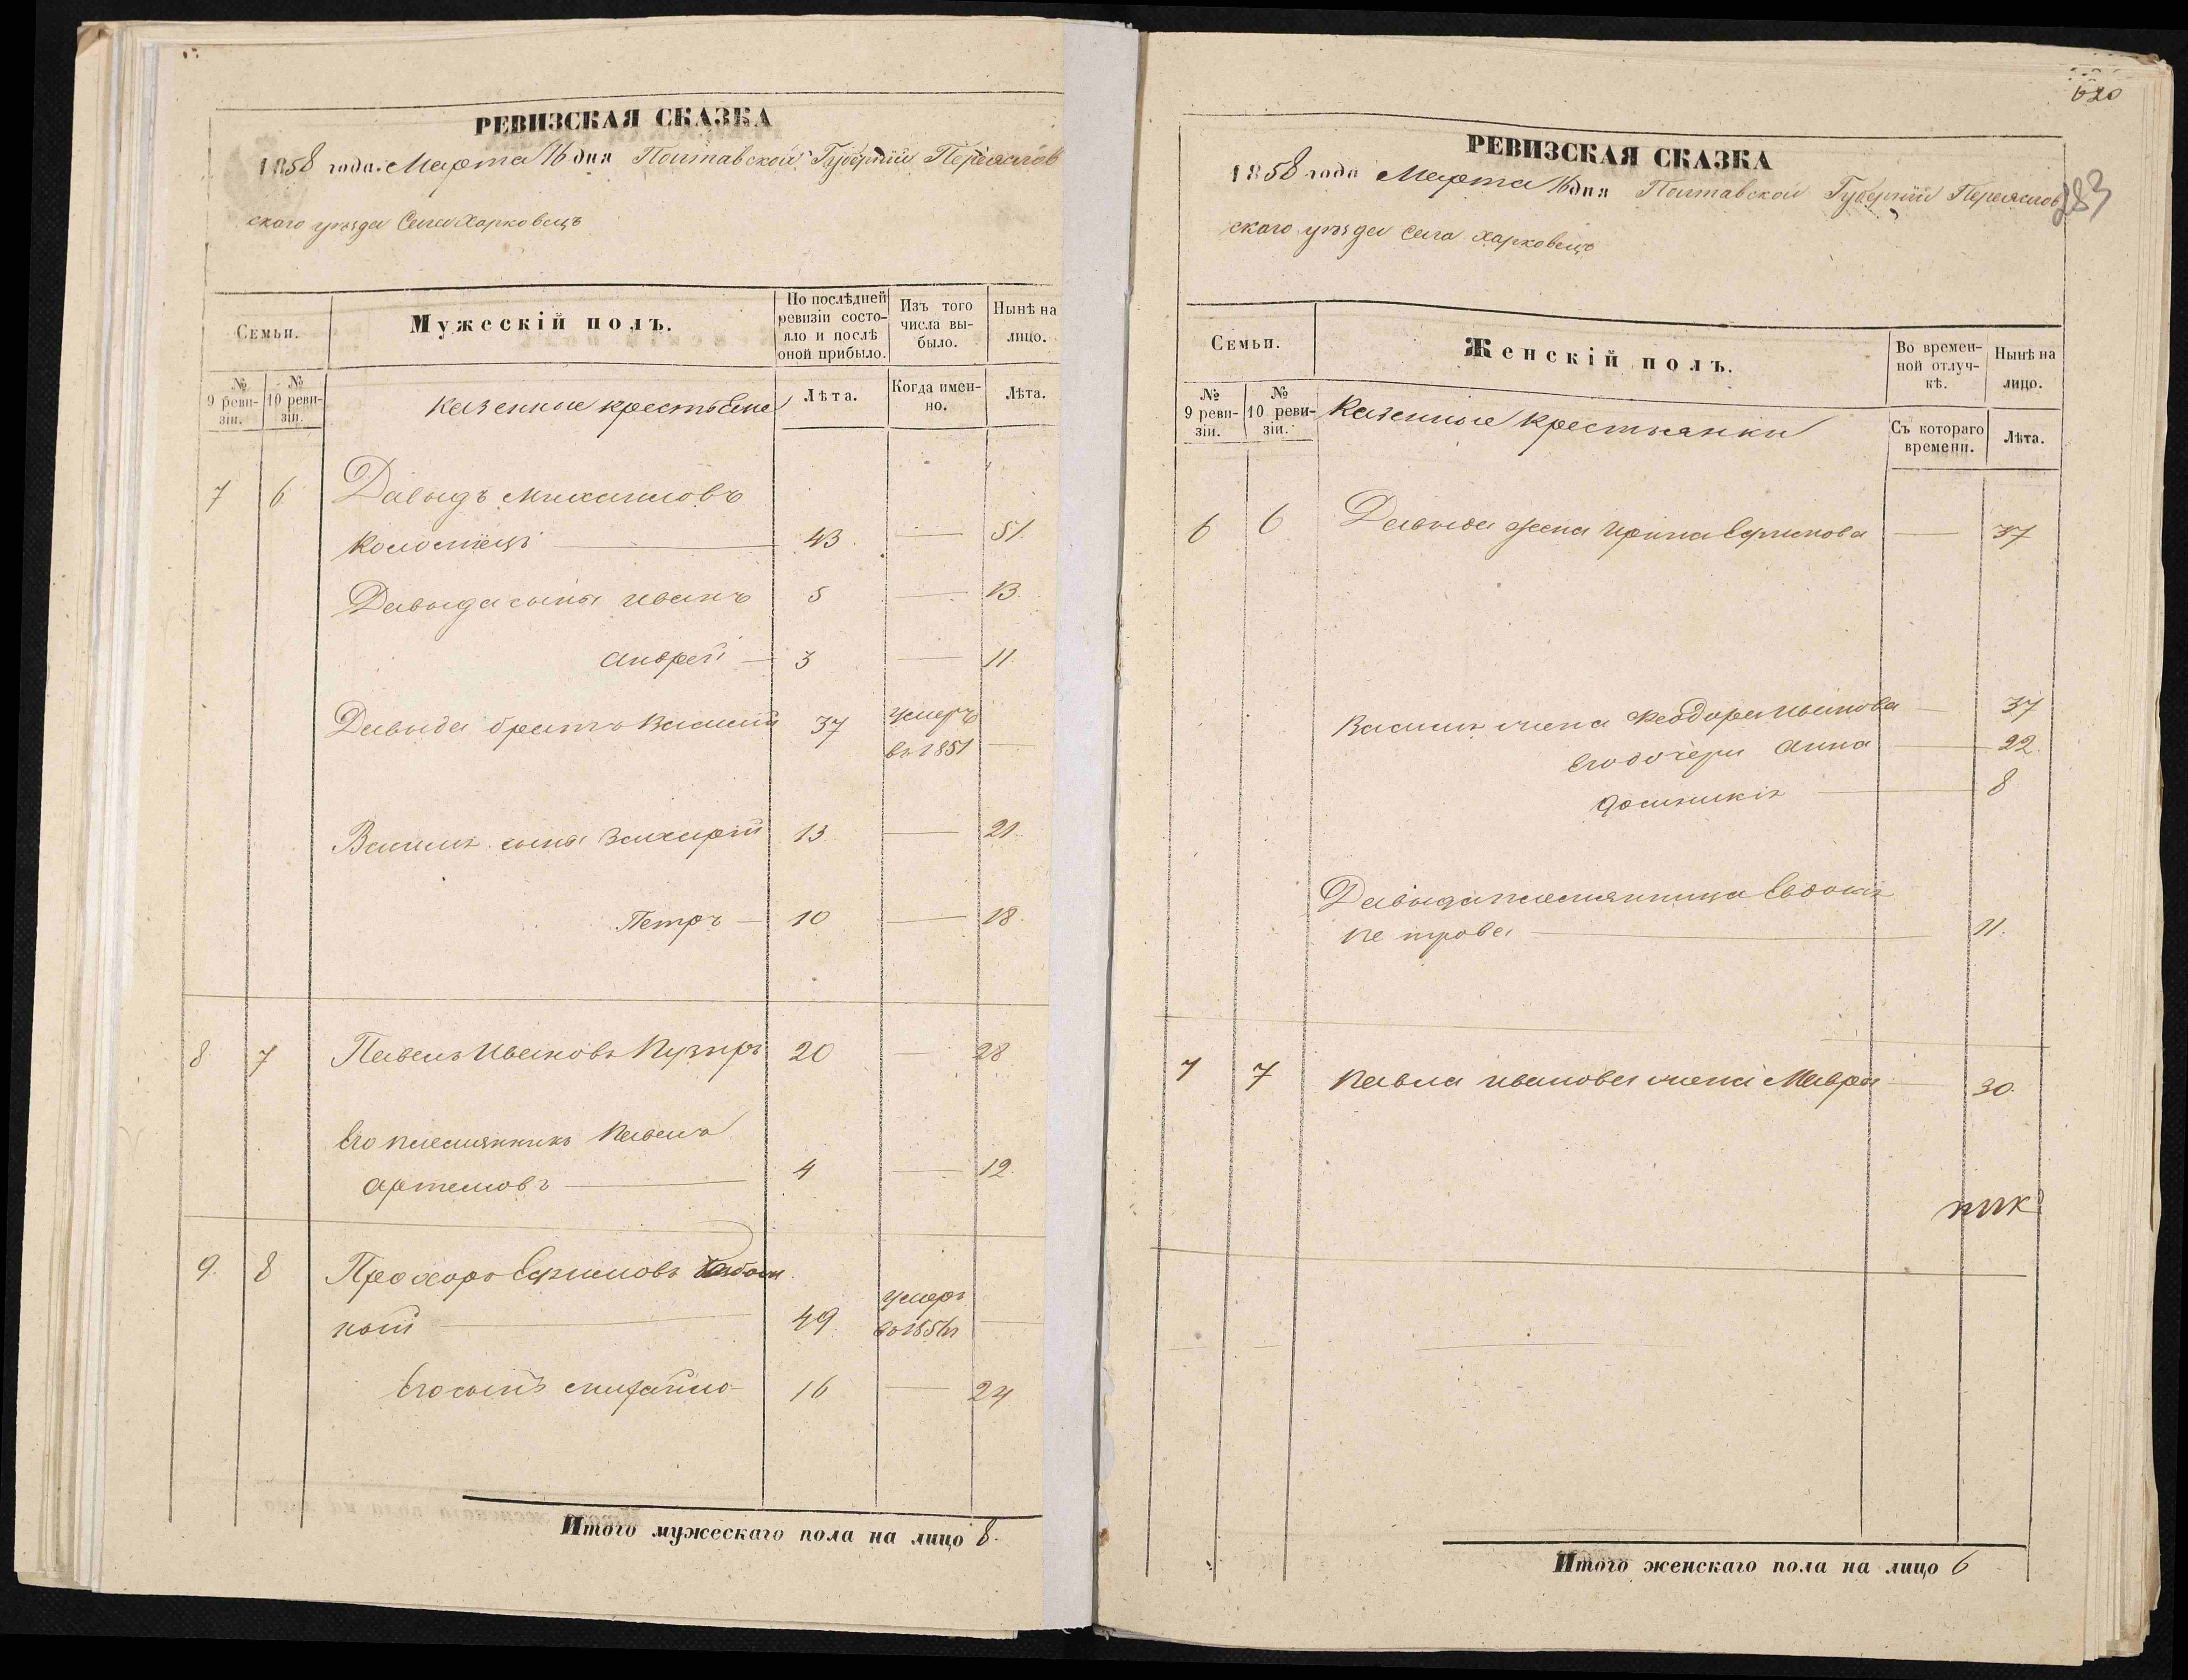 РЕВИЗСКАЯ СКАЗКА
1858 года Марта 16 дня Полтавской Губерніи Переяслов
скаго уѣзда Села Харковецъ
Семьи.
Мужескій полъ.
По послѣдней ревизіи состояло и послѣ оной прибыло.
Изъ того числа выбыло.
Нынѣ на лицо.
№ 9 ревизіи.
№ 10 ревизіи.
казенные крестьяне
Лѣта.
Когда именно.
Лѣта.
7 6 Давыдъ Михаиловъ
Коломіецъ 43 — 51.
Давыда сыны Иванъ 5 — 13.
Андрей — 3 — 11.
Давыда братъ Василій 37 умеръ
въ 1851 —
Василія сыны Захарій 13 — 21.
Петръ — 10 — 18.
8 7 Павелъ Ивановъ Пузиръ 20 — 28
Его племянникъ Павелъ
Артемовъ — 4 — 12.
9. 8 Прохоръ Ефимовъ
ной 49 умеръ
—
Его сынъ 16 — 24
Итого мужескаго пола на лицо 8.
620
283
РЕВИЗСКАЯ СКАЗКА
1858 года Марта 16 дня Полтавской Губерніи Переяслов
скаго уѣзда Села Харковецъ
Семьи.
Женскій полъ.
Во временной отлучкѣ.
Нынѣ на лицо.
№ 9 ревизіи.
№ 10 ревизіи.
Казенные крестьянки
Съ котораго времени.
Лѣта.
6 6 Давыда жена Ирина Ефимова — 37
Василія жена Феодора Иванова — 37
Его дочери Анна — 22.
Домникія — 8
Давыда племянница Евдокія
Петрова — 11.
7 7 Павла Иванова жена Мавра — 30.
Итого женскаго пола на лицо 6